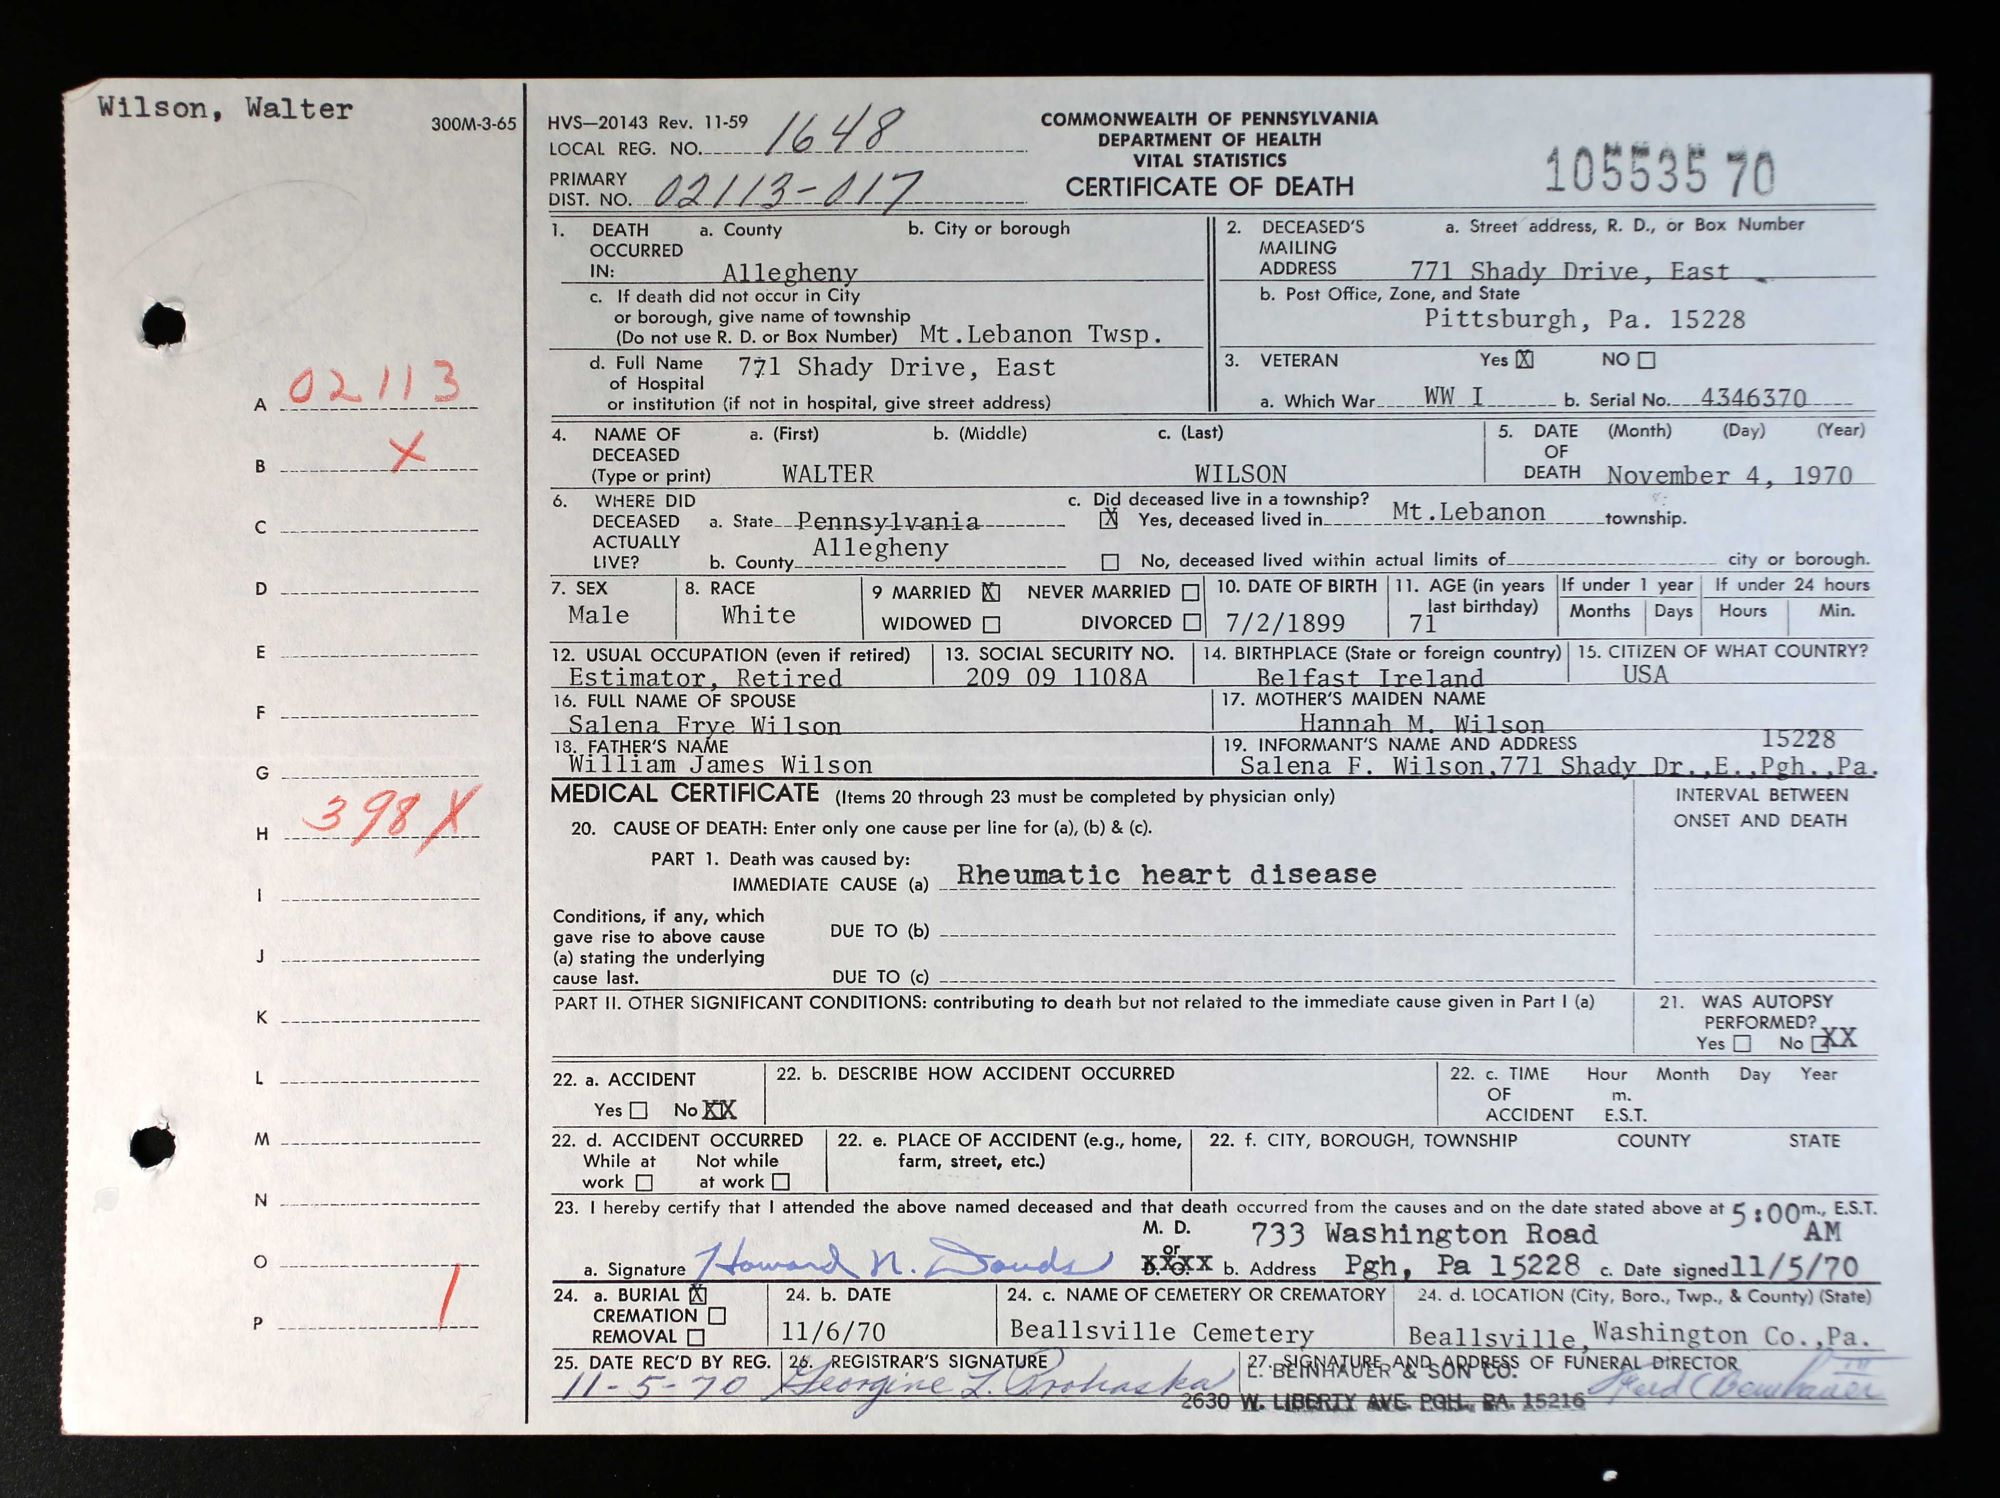 Wilson, Walter
300M-3-65
A 02113
B X
C
D
E
F
G
H 398X
I
J
K
L
M
N
O
P 1
HVS—20143 Rev. 11-59
LOCAL REG. NO. 1648
PRIMARY
DIST. NO. 02113-017
COMMONWEALTH OF PENNSYLVANIA
DEPARTMENT OF HEALTH
VITAL STATISTICS
CERTIFICATE OF DEATH
105535 70
1. DEATH OCCURRED IN: a. County b. City or borough
Allegheny
c. If death did not occur in City
or borough, give name of township
(Do not use R. D. or Box Number) Mt.Lebanon Twsp.
d. Full Name of Hospital 771 Shady Drive, East
or institution (if not in hospital, give street address)
2. DECEASED'S MAILING ADDRESS a. Street address, R. D., or Box Number
771 Shady Drive, East
b. Post Office, Zone, and State
Pittsburgh, Pa. 15228
3. VETERAN Yes X NO
a. Which War WW I b. Serial No. 4346370
4. NAME OF DECEASED (Type or print) a. (First) b. (Middle) c. (Last)
WALTER WILSON
5. DATE OF DEATH (Month) (Day) (Year)
November 4, 1970
6. WHERE DID DECEASED ACTUALLY LIVE?
a. State Pennsylvania
b. County Allegheny
c. Did deceased live in a township?
X Yes, deceased lived in Mt.Lebanon township.
No, deceased lived within actual limits of city or borough.
7. SEX
Male
8. RACE
White
9 MARRIED X NEVER MARRIED
WIDOWED DIVORCED
10. DATE OF BIRTH
7/2/1899
11. AGE (in years last birthday)
71
If under 1 year If under 24 hours
Months Days Hours Min.
12. USUAL OCCUPATION (even if retired)
Estimator, Retired
13. SOCIAL SECURITY NO.
209 09 1108A
14. BIRTHPLACE (State or foreign country)
Belfast Ireland
15. CITIZEN OF WHAT COUNTRY?
USA
16. FULL NAME OF SPOUSE
Salena Frye Wilson
17. MOTHER'S MAIDEN NAME
Hannah M. Wilson
18. FATHER'S NAME
William James Wilson
19. INFORMANT'S NAME AND ADDRESS 15228
Salena F. Wilson,771 Shady Dr.,E.,Pgh.,Pa.
MEDICAL CERTIFICATE (Items 20 through 23 must be completed by physician only)
INTERVAL BETWEEN
ONSET AND DEATH
20. CAUSE OF DEATH: Enter only one cause per line for (a), (b) & (c).
PART 1. Death was caused by:
IMMEDIATE CAUSE (a) Rheumatic heart disease
Conditions, if any, which
gave rise to above cause
(a) stating the underlying
cause last.
DUE TO (b)
DUE TO (c)
PART II. OTHER SIGNIFICANT CONDITIONS: contributing to death but not related to the immediate cause given in Part I (a)
21. WAS AUTOPSY
PERFORMED?
Yes No XX
22. a. ACCIDENT
Yes No XX
22. b. DESCRIBE HOW ACCIDENT OCCURRED
22. c. TIME OF ACCIDENT Hour Month Day Year
m.
E.S.T.
22. d. ACCIDENT OCCURRED
While at work Not while at work
22. e. PLACE OF ACCIDENT (e.g., home,
farm, street, etc.)
22. f. CITY, BOROUGH, TOWNSHIP COUNTY STATE
23. I hereby certify that I attended the above named deceased and that death occurred from the causes and on the date stated above at 5:00 m., E.S.T.
AM
a. Signature Howard N. Douds M. D. or D. O. XXXX
b. Address 733 Washington Road
Pgh, Pa 15228 c. Date signed 11/5/70
24. a. BURIAL X
CREMATION
REMOVAL
24. b. DATE
11/6/70
24. c. NAME OF CEMETERY OR CREMATORY
Beallsville Cemetery
24. d. LOCATION (City, Boro., Twp., & County) (State)
Beallsville, Washington Co.,Pa.
25. DATE REC'D BY REG.
11-5-70
26. REGISTRAR'S SIGNATURE
Georgine L. Prohaska
27. SIGNATURE AND ADDRESS OF FUNERAL DIRECTOR
L. BEINHAUER & SON CO.
2630 W. LIBERTY AVE. PGH., PA. 15216